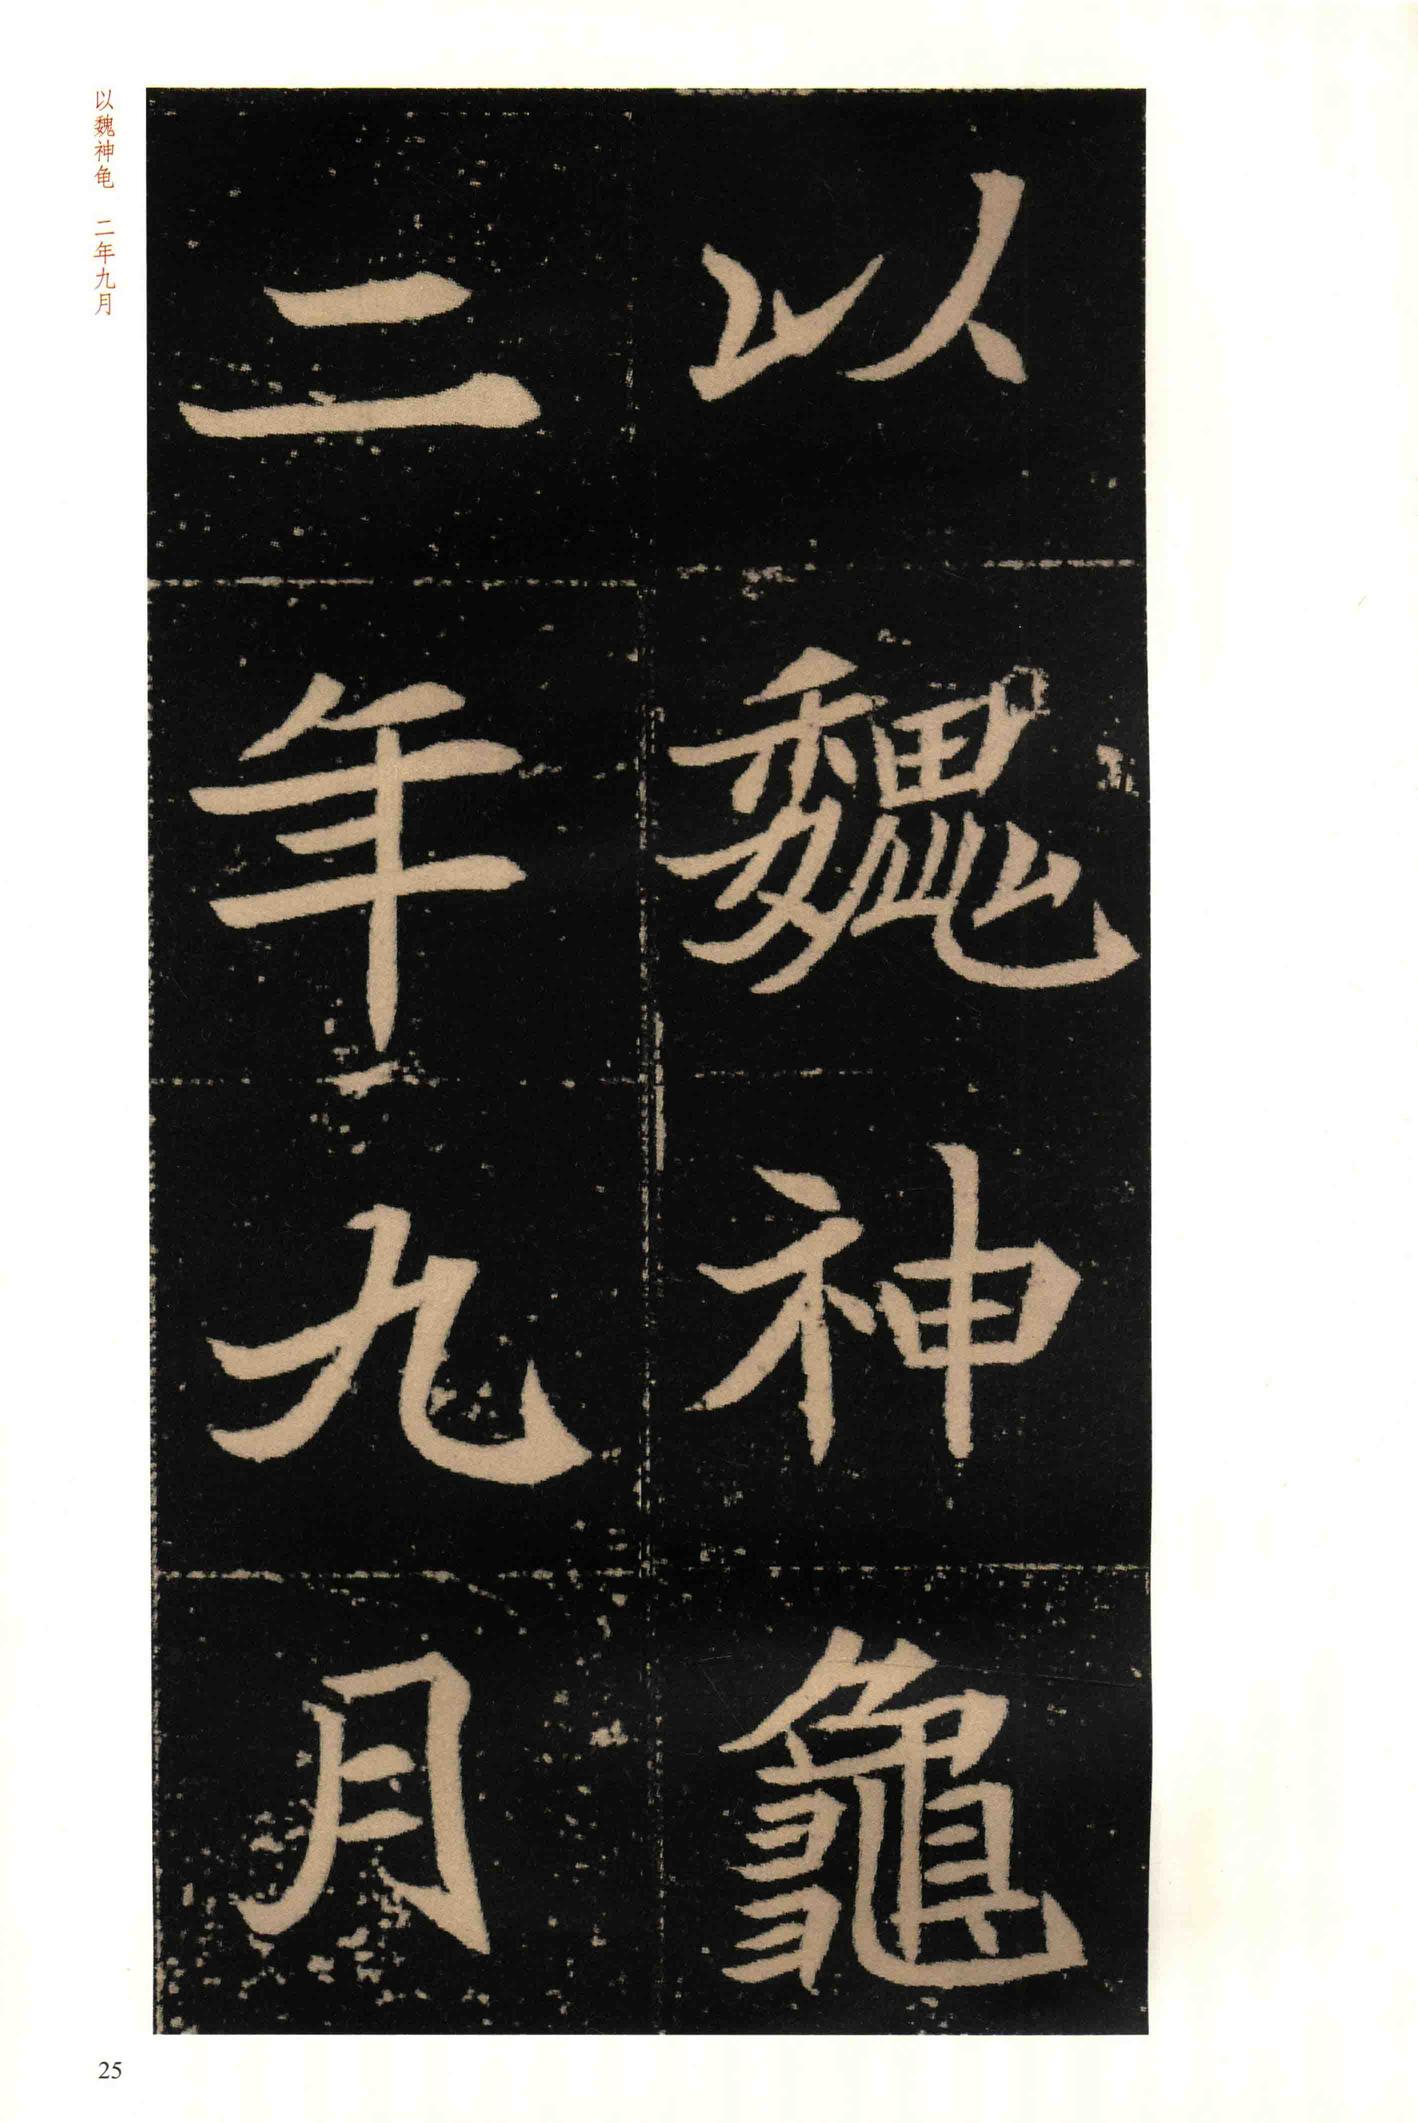 以魏神龜
二年九月
以魏神龟　二年九月
25